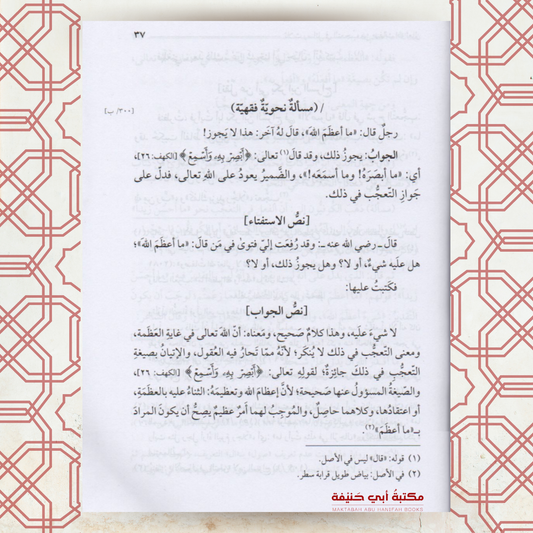 ٣٧
/ (مسألةٌ نحويّةٌ فقهيّة) [٣٠٠/ ب]
رجلٌ قال: «ما أعظَمَ الله»، قالَ لهُ آخَر: هذا لا يَجوز!
الجوابُ: يجوزُ ذلك، وقد قالَ(١) تعالى: ﴿أَبْصِرْ بِهِۦ وَأَسْمِعْ﴾ [الكهف: ٢٦]،
أي: «ما أبصَرَهُ! وما أسمَعَه!»، والضَّميرُ يعودُ على اللهِ تعالى، فدلَّ على
جَوازِ التّعجُّب في ذلك.
[نصُّ الاستفتاء]
قالَ ـ رضي الله عنه ـ: وقد رُفِعَت إليّ فتوىٰ في مَن قالَ: «ما أعظَمَ اللهَ»؛
هل علَيه شيءٌ، أو لا؟ وهل يجوزُ ذلك، أو لا؟
فكَتبتُ عليها:
[نصُّ الجواب]
لا شيءَ علَيه، وهذا كلامٌ صَحيح، ومَعناه: أنّ اللهَ تعالى في غايةِ العَظَمة،
ومعنى التّعجُّب في ذلك لا يُنكَر؛ لأنّهُ ممّا تَحارُ فيه العُقول، والإتيانُ بصيغةِ
التّعجُّبِ في ذلكَ جائِزةٌ؛ لقولِهِ تعالى: ﴿أَبْصِرْ بِهِۦ وَأَسْمِعْ﴾ [الكهف: ٢٦]،
والصّيغةُ المسؤولُ عنها صَحيحة؛ لأنّ إعظامَ اللهِ وتعظيمَهُ: الثناءُ عليه بالعظَمةِ،
أو اعتقادُها، وكلاهما حاصِلٌ، والمُوجِبُ لهما أمرٌ عظيمٌ يصِحُّ أن يكونَ المرادَ
بـ«ما أعظَمَ»(٢)
(١) قوله: «قال» ليس في الأصل.
(٢) في الأصل: بياض طويل قرابة سطر.
مكتبة أبي حنيفة
MAKTABAH ABU HANIFAH BOOKS